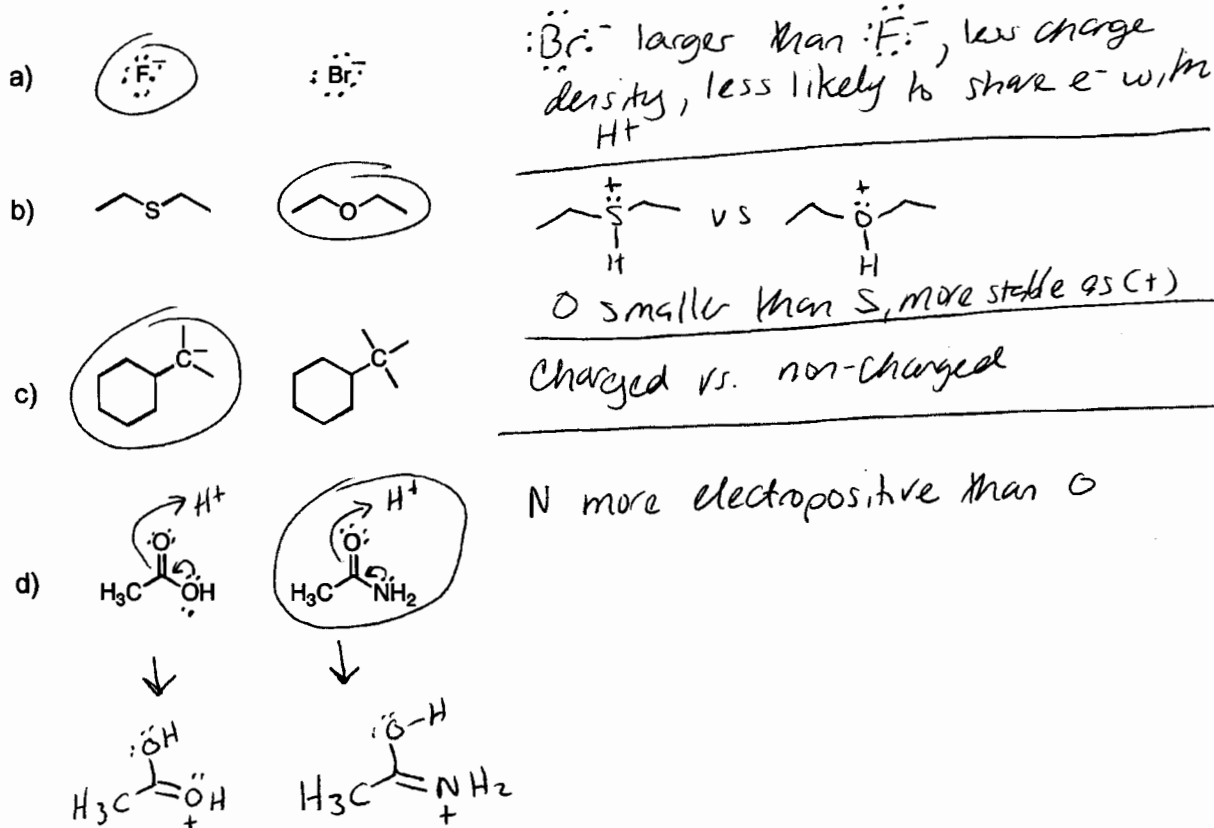 a) :F:⁻ :Br:⁻ :Br:⁻ larger than :F:⁻, less charge
density, less likely to share e⁻ with
H+
b) S O + S H vs + O H
O smaller than S, more stable as (+)
c) C⁻ C Charged vs. non-charged
H+ H+ N more electropositive than O
d) O H₃C OH O H₃C NH₂
:OH H₃C OH + :O-H H₃C NH₂ +